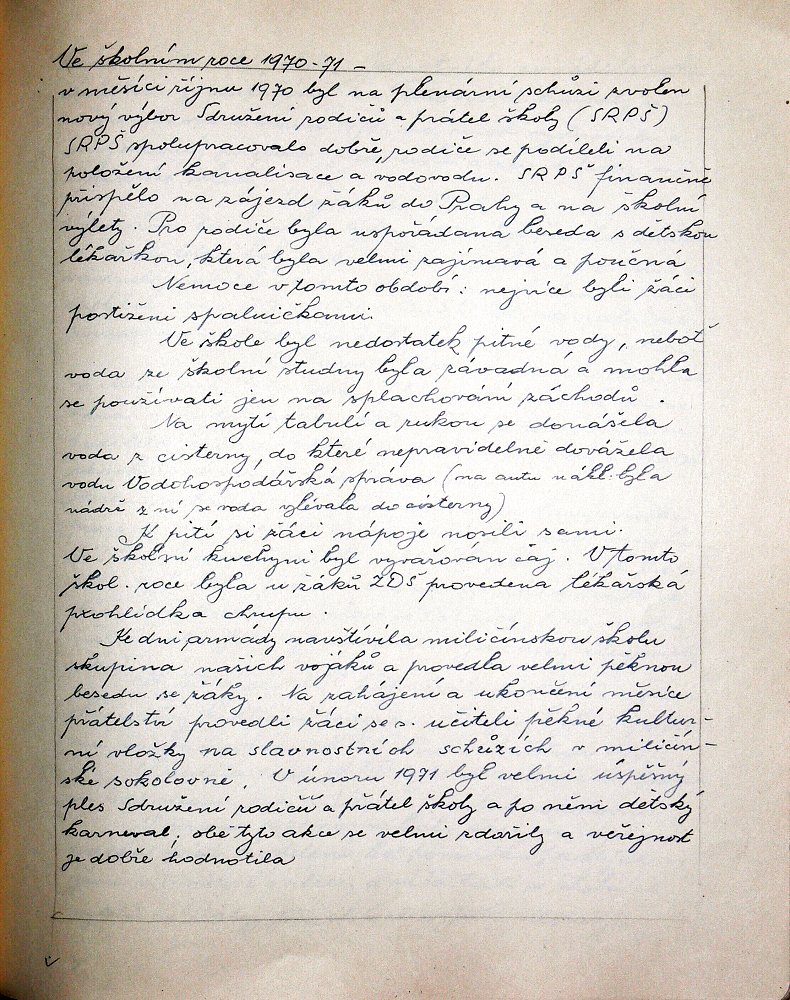 Ve školním roce 1970-71 –
v měsíci říjnu 1970 byl na plenární schůzi zvolen
nový výbor Sdružení rodičů a přátel školy (SRPŠ)
SRPŠ spolupracovalo dobře, rodiče se podíleli na
položení kanalisace a vodovodu. SRPŠ finančně
přispělo na zájezd žáků do Prahy a na školní
výlety. Pro rodiče byla uspořádana beseda s dětskou
lékařkou, která byla velmi zajímavá a poučná
Nemoce v tomto období: nejvíce byli žáci
postiženi spalničkami.
Ve škole byl nedostatek pitné vody, neboť
voda ze školní studny byla závadná a mohla
se používati jen na splachování záchodů.
Na mytí tabulí a rukou se donášela
voda z cisterny, do které nepravidelně dovážela
vodu Vodohospodářská správa (na autu nákl. byla
nádrž z ní se voda vylévala do cisterny)
K pití si žáci nápoje nosili sami.
Ve školní kuchyni byl vyvařován čaj. V tomto
škol. roce byla u žáků ZDŠ provedena lékařská
prohlídka chrupu.
Ke dni armády navštívila miličínskou školu
skupina našich vojáků a provedla velmi pěknou
besedu se žáky. Na zahájení a ukončení měsíce
přátelství provedli žáci se s. učiteli pěkné kultur-
ní vložky na slavnostních schůzích v miličín-
ské sokolovně. V únoru 1971 byl velmi úspěšný
ples Sdružení rodičů a přátel školy a po něm dětský
karneval, obě tyto akce se velmi zdařily a veřejnost
je dobře hodnotila